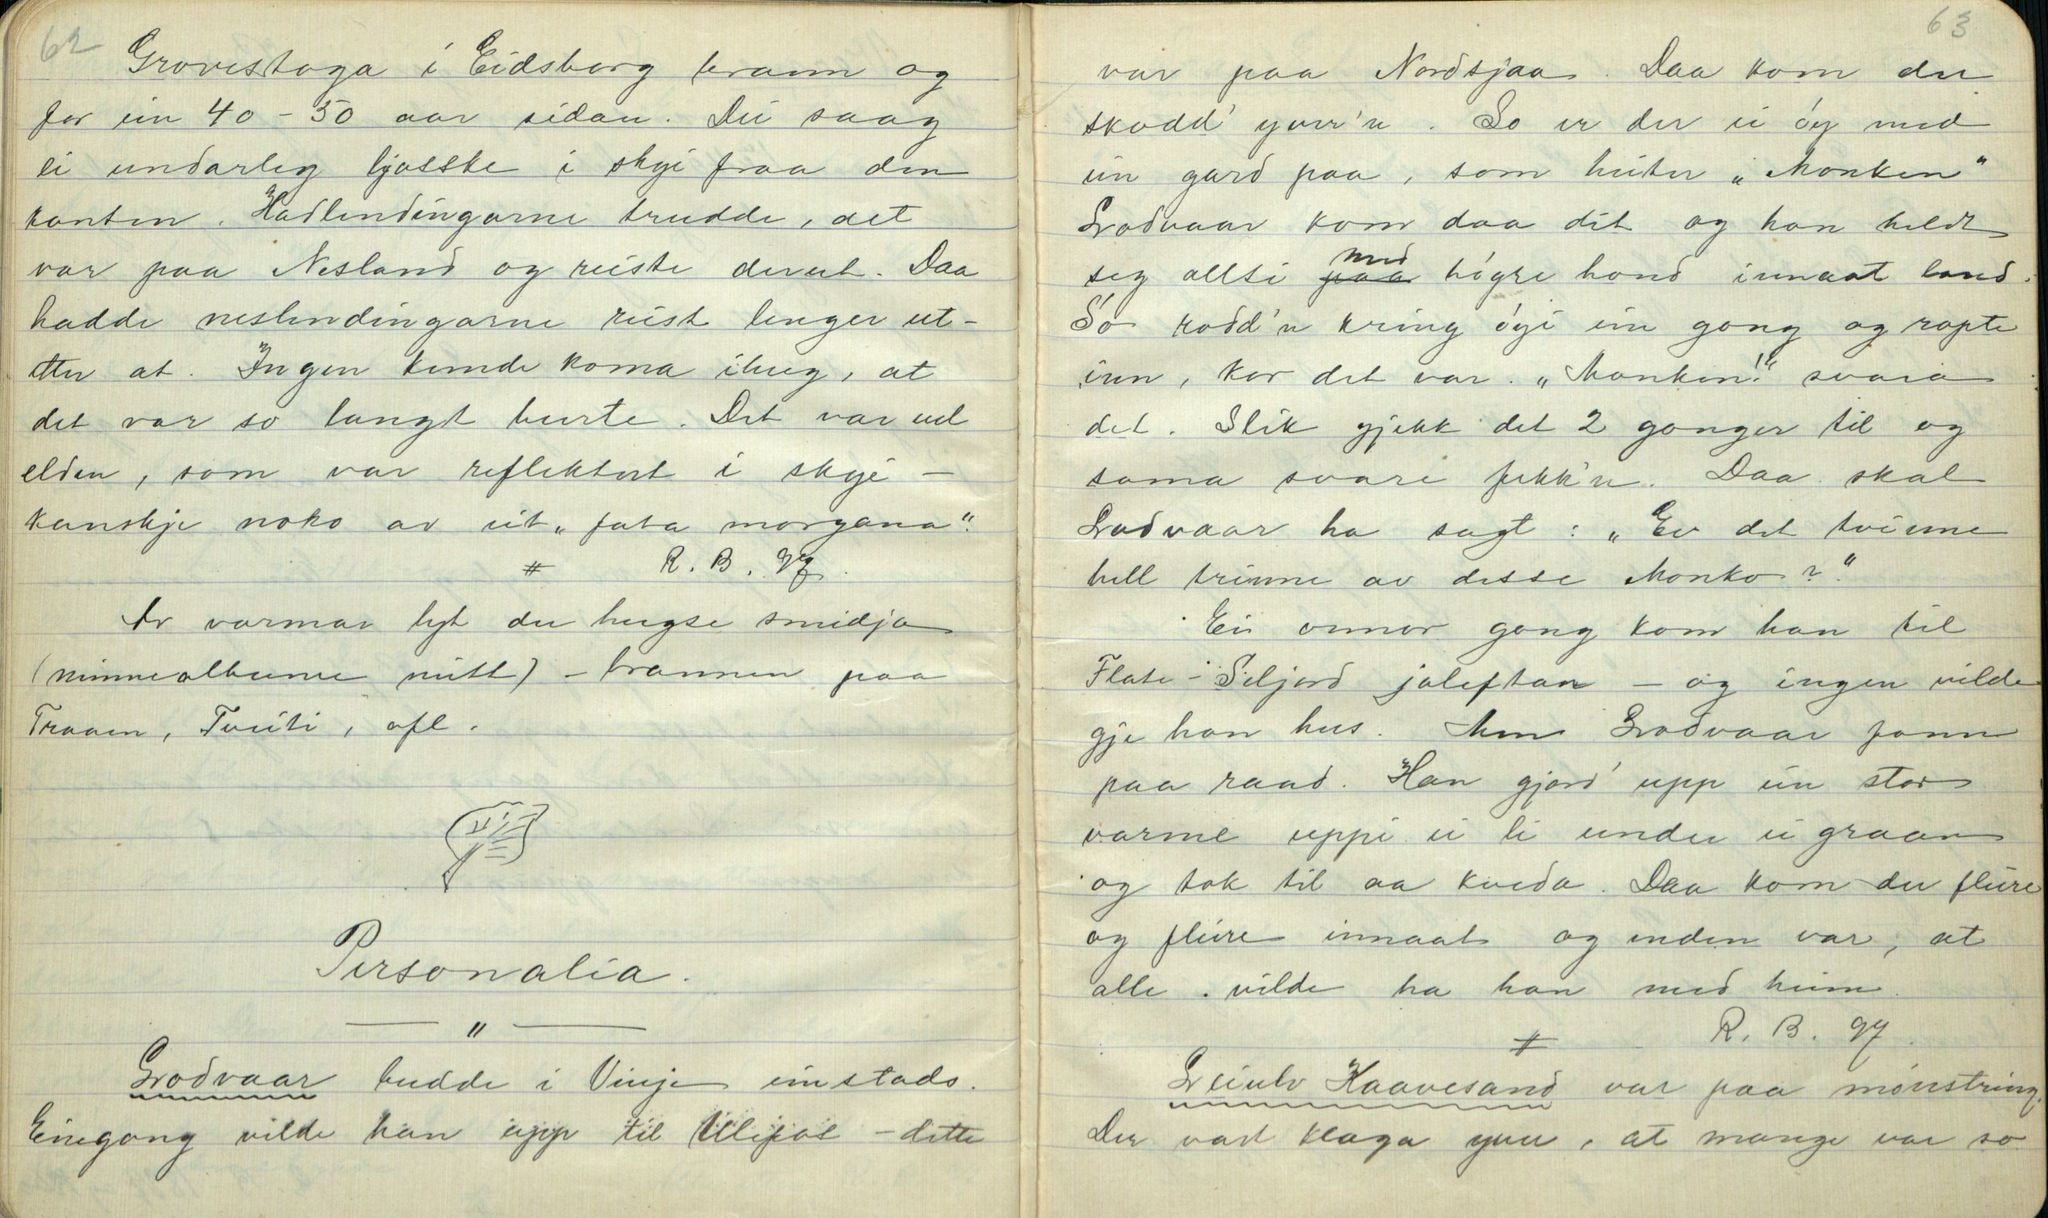 62
Grovestoga i Eidsborg brann og
for ein 40-50 aar sidan. Dei saag
ei undarleg ljosske i skyi fraa den
kanten. Hadlendingarne trudde, det
var paa Nesland og reiste derut. Daa
hadde neslendingarne reist lenger ut-
etter at. Ingen kunde koma ihug, at
det var so langt burte. Det var vel
elden, som var reflektert i skyi -
kanskje noko av eit "fata morgana".
# R. B.
Av varmar lyt du hugse smidja
(minnealbume mitt) - brannen paa
Traaen, Tveiti, ofl.
Personalia.
— " —
Lrodvaar budde i Vinje einstads.
Eingong vilde han upp til Ulijos - dette
63
var paa Nordsjaa. Daa kom der
skodd' yver'n. So er der ei öy med
ein gard paa, som heiter "Monken"
Lrodvaar kom daa dit og han heldt
seg allti paa med högre hond innaat land.
So rodd'n kring öyi ein gong og ropte
inn, kor det var. "Monken!" svara
det. Slik gjekk det 2 gonger til og
soma svare fekk'n. Daa skal
Lrodvaar ha sagt: "Er det tvinne
hell trinne av desse Monko?"
Ei onnor gong kom han til
Flate-Seljord joleftan - og ingen vilde
gje han hus. Men Lrodvaar fann
paa raad. Han gjord' upp ein stor
varme uppi ei li under ei graan
og tok til aa kveda. Daa kom der fleire
og fleire innaat og enden var, at
alle vilde ha han med heim.
# R. B.
Leiulv Kaavesand var paa mönstring.
Der vart klaga yver, at mange var so